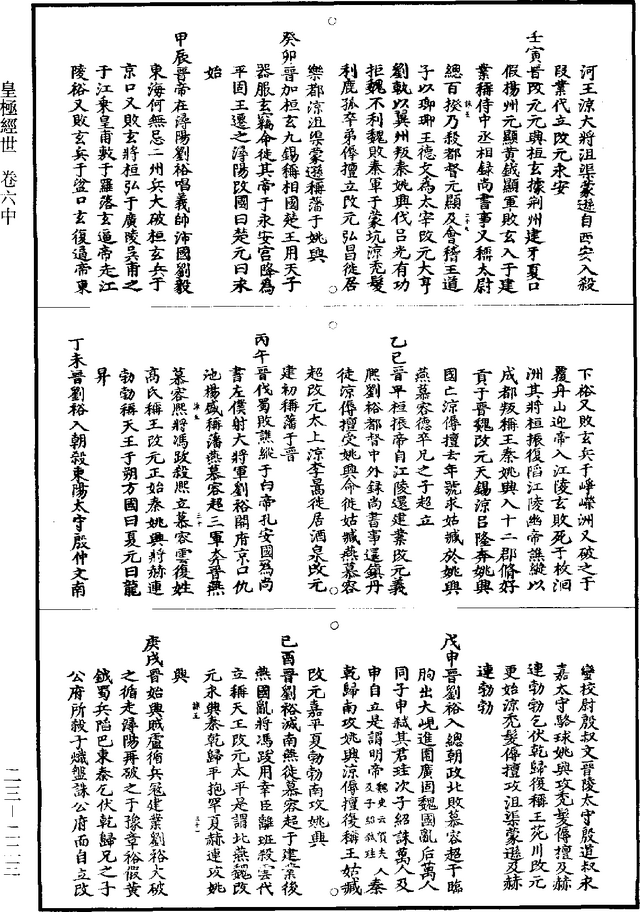 河王涼大將沮渠蒙遜自西安入殺
段業代立改元永安
壬寅晉改元元興桓玄據荆州建牙夏口
假揚州元顯黄鉞顯軍敗玄入于建
業稱侍中丞相録尚書事又稱太尉
總百揆乃殺都督元顯及會稽王道
子以瑯琊王德文為太宰改元大亨
劉軌以冀州叛秦姚興伐吕光有功
拒魏不利魏敗秦軍于蒙坑涼禿髮
利鹿孤卒弟傉擅立改元弘昌徙居
樂都涼沮渠蒙遜稱藩于姚興
癸卯晉加桓玄九錫稱相國楚王用天子
器服玄竊命徙其帝于永安宮降為
平固王遷之潯陽改國曰楚元曰永
始
甲辰晉帝在潯陽劉裕唱義師沛國劉毅
東海何無忌二州兵大破桓玄兵于
京口又敗玄將桓弘于廣陵吴甫之
于江乗皇甫敷于羅落玄逼帝走江
陵裕又敗玄兵于湓口玄復逼帝東
下裕又敗玄兵于崢嶸洲又破之于
覆舟山迎帝入江陵玄敗死于枚洄
洲其將桓振復陷江陵幽帝譙縱以
成都叛稱王秦姚興入十二郡脩好
貢于晉魏改元天錫涼吕隆奔姚興
國亡涼傉擅去年號求姑臧於姚興
燕慕容德卒兄之子超立
乙巳晉平桓振帝自江陵還建業改元義
熈劉裕都督中外録尚書事還鎮丹
徒涼傉擅受姚興命徙姑臧燕慕容
超改元太上涼李暠徙居酒泉改元
建初稱藩于晉
丙午晉伐蜀敗譙縱于白帝孔安國爲尚
書左僕射大將軍劉裕開府京口仇
池楊盛稱藩燕慕容超三軍奔晉燕
慕容熈將馮政殺熈立慕容雲復姓
高氏稱王改元正始秦姚興將赫連
勃勃稱天王于朔方國曰夏元曰龍
昇
丁未晉劉裕入朝殺東陽太守殷仲文南
蠻校尉殷叔文晉陵太守殷道叔永
嘉太守駱球姚興攻禿髮傉擅及赫
連勃勃乞伏乾歸復稱王苑川改元
更始涼禿髮傉擅攻沮渠蒙遜及赫
連勃勃
戊申晉劉裕入總朝政北敗慕容超于臨
朐出大峴進圍廣固魏國亂后萬人
同子申弑其君珪次子紹誅萬人及
申自立是謂明帝魏史云賀夫人及子紹弑珪秦
乾歸南攻姚興涼傉擅復稱王姑臧
改元嘉平夏勃勃南攻姚興
己酉晉劉裕滅南燕徙慕容超于建業後
燕國亂將馮跋用幸臣離班殺雲代
立稱天王改元太平是謂北燕魏改
元永興秦乾歸平抱罕夏赫連攻姚
興
庚戌晉始興賊盧循兵冦建業劉裕大破
之循走潯陽再破之于豫章裕假黄
鉞蜀兵陷巴東秦乞伏乾歸兄之子
公府所殺于熾盤誅公府而自立改
皇極經世 卷六中
二三—二二三